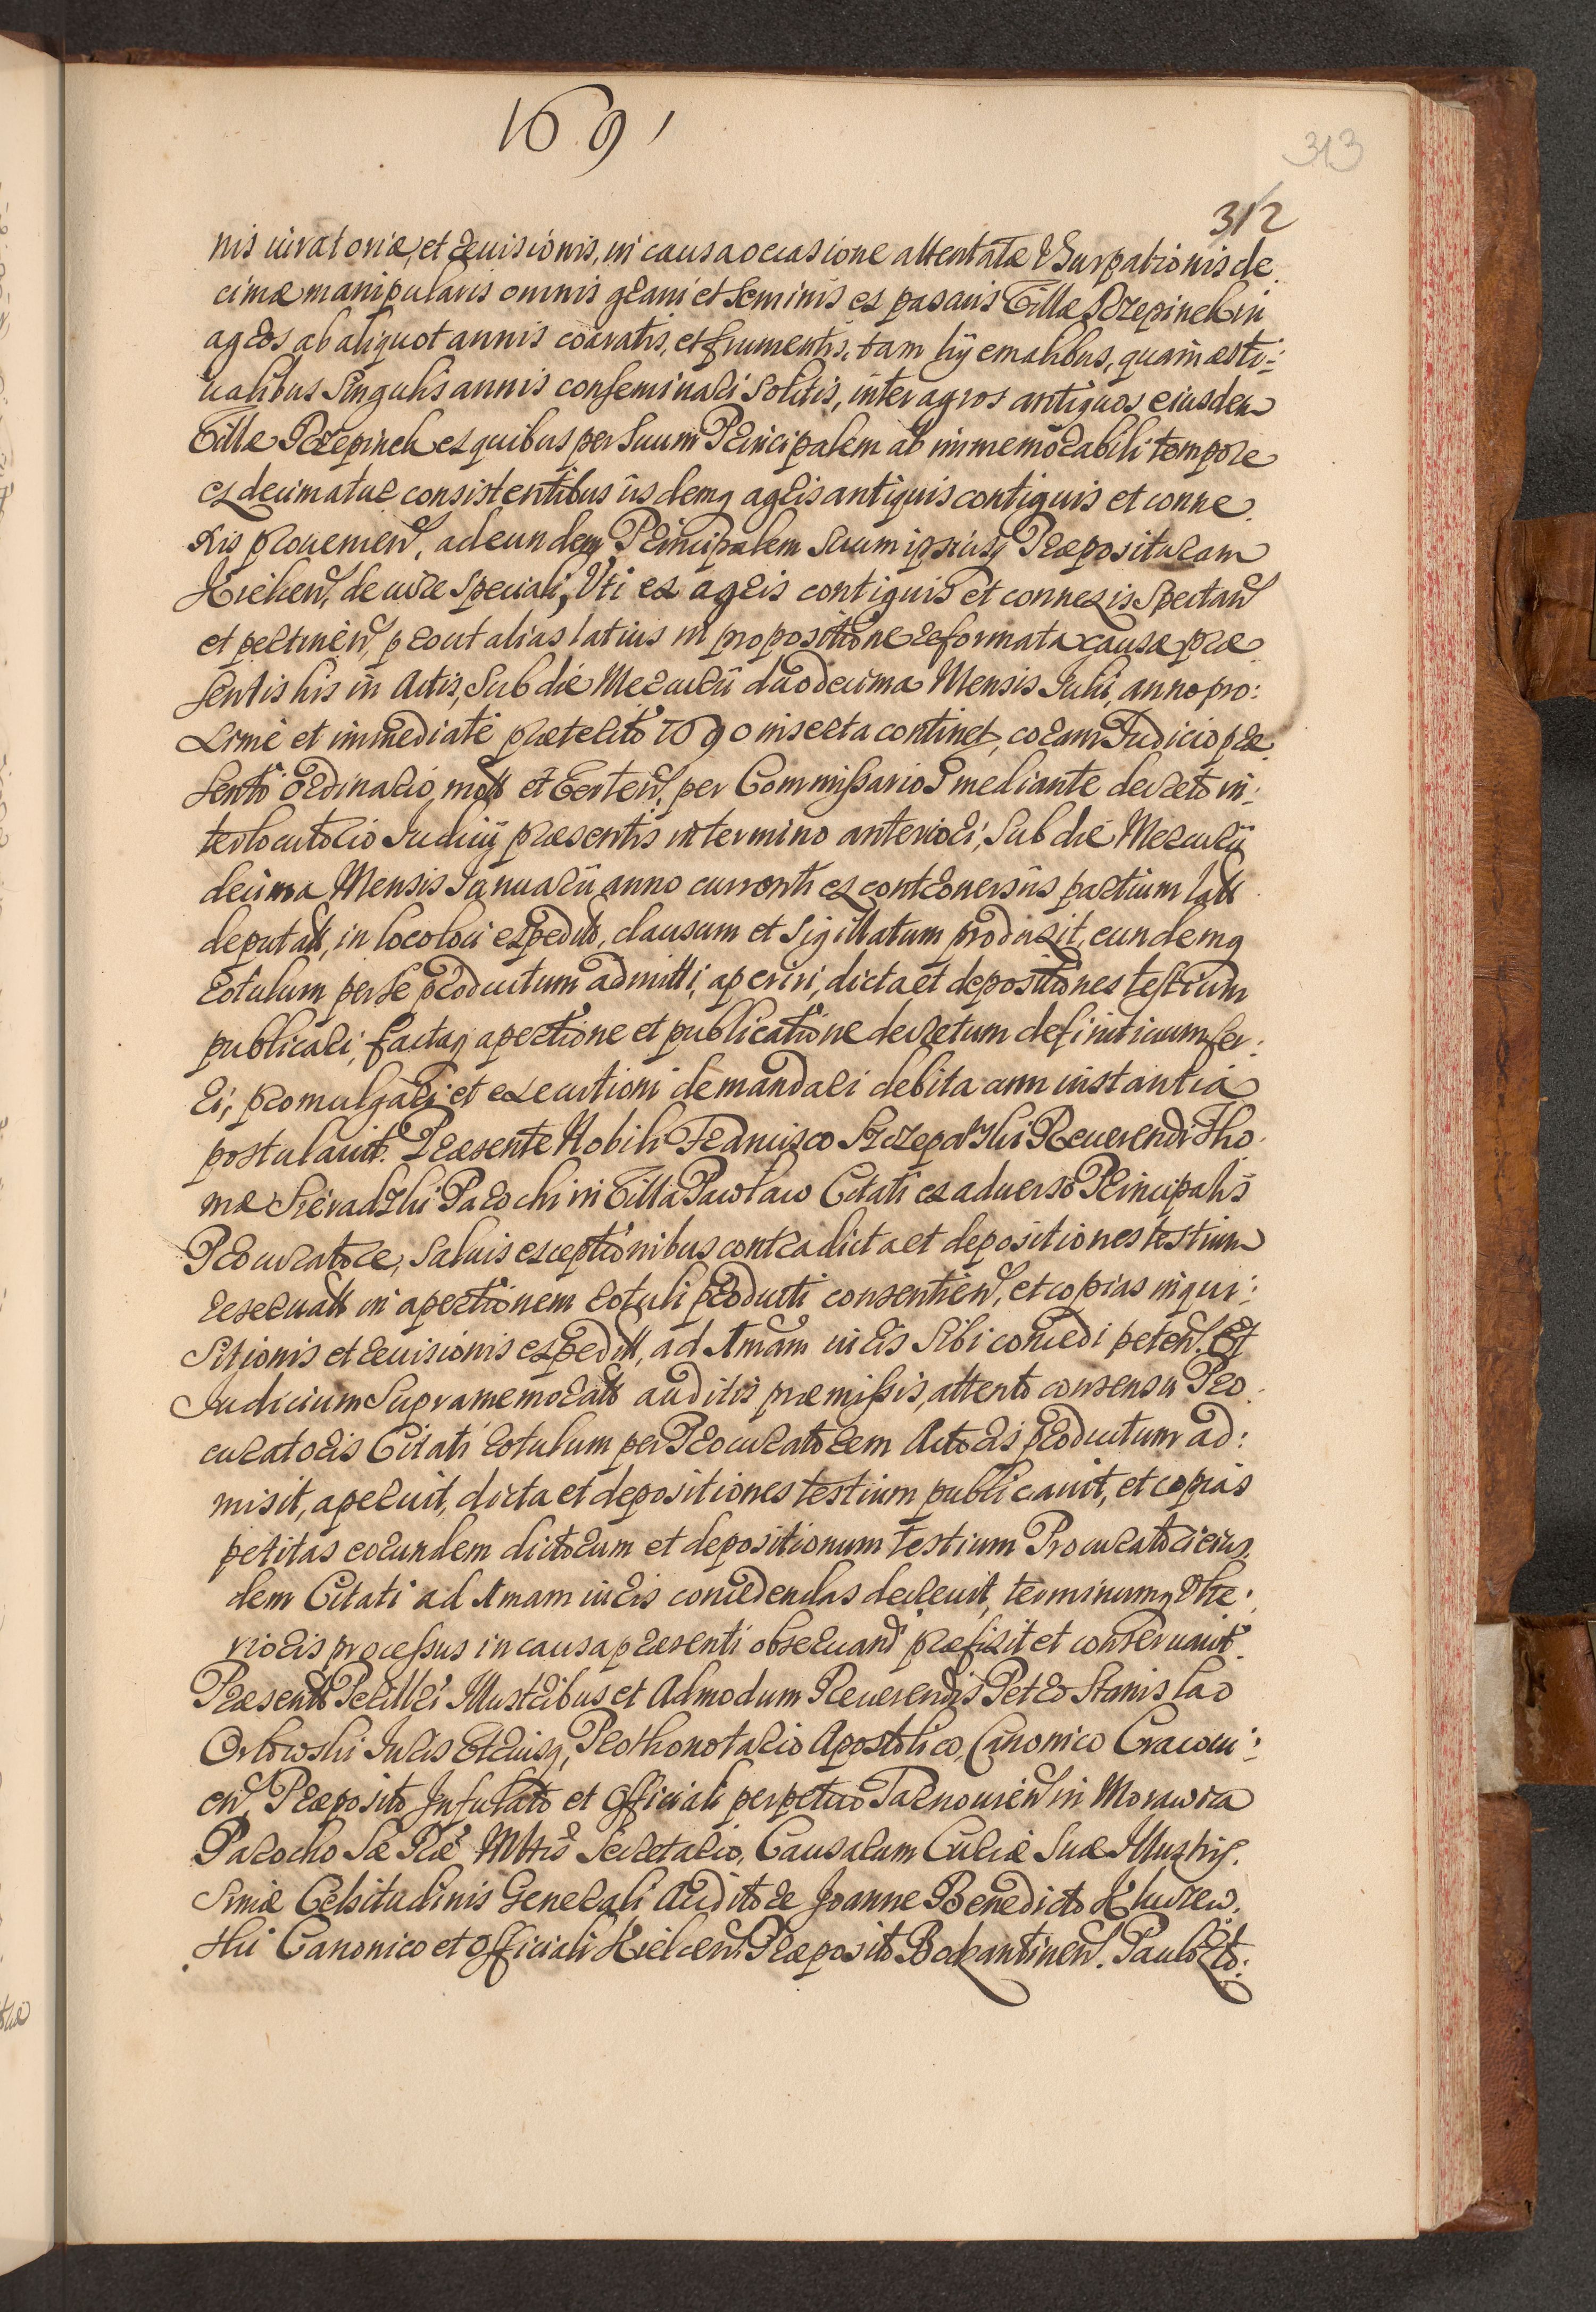 1691
313
312
nis iuratoriæ, et reuisionis, in causa occasione attentatæ Vsurpationis de
cimæ manipularis omnis grani et seminis ex pascuis Villæ Przepinek in
agros ab aliquot annis coaratis, et frumentis, tam hÿemalibus, quam æsti:
ualibus singulis annis conseminari solitis, inter agros antiquos eiusdem
Villæ Przepinek ex quibus per suum Principalem ab immemorabili tempore
ex decimatur consistentibus iisdemq agris antiquis contiguis et conne
xis prouenien, ad eundem Principalem suum ipsiusq Præposituram
Kielcen, de iure speciali, Vti ex agris contiguis et connexis spectan
et pertinen, prout alias latius in propositione reformata causæ præ
sentis his in Actis, sub die Mercurii duodecima Mensis Iulii, anno pro:
xime et immediate præterito 1690 inserta continet, coram Iudicio præ
senti ordinario mott et Verten, per Commissarios mediante decreto in:
terlocutorio Iudicÿ præsentis in termino anteriori, sub die Mercurii
decima Mensis Ianuarii anno currenti ex controuersiis partium latt
deputatt, in loco loci expedit, clausum et sigillatum produxit, eundemq
rotulum per se productum admitti, aperiri, dicta et depositiones testium
publicari, factaq apertione et publicatione decretum definitiuum fer:
ri, promulgari et executioni demandari debita cum instantia
postulauit. Præsente Nobili Francisco Szczepaṅski Reuerendi Tho
mæ Sieradzki Parochi in Villa Pawłow Citati ex aduerso Principalis
Procuratore, saluis exceptionibus contra dicta et depositiones testium
reseruatt in apertionem rotuli producti consentien, et copias inqui:
sitionis et reuisionis expeditt, ad Amam iuris sibi concedi peten. Et
Iudicium supramemoratt auditis præmissis, attento consensu Pro
curatoris Citati rotulum per Procuratorem Actoris productum ad:
misit, aperuit, dicta et depositiones testium publicauit, et copias
petitas eorundem dictorum et depositionum testium Procuratori eius
dem Citati ad Amam iuris concedendas decreuit, terminumq Vlte:
rioris processus in causa præsenti obseruandi præfixit et conseruauit.
Præsentt Perillri Illustribus et Admodum Reuerendis Petro Stanislao
Orłowski Iuris Vtriusq, Prothonotario Apostolico, Canonico Cracoui:
en, Præposito Infulato et Officiali perpetuo Tarnouien in Morawica
Parocho Sæ Ræ Mttis Secretario, Causarum Curiæ Suæ Illustris
simæ Celsitudinis Generali Auditore Joanne Benedicto
ski Canonico et Officiali Kielcen Præposito Bodzantinen. Paulo